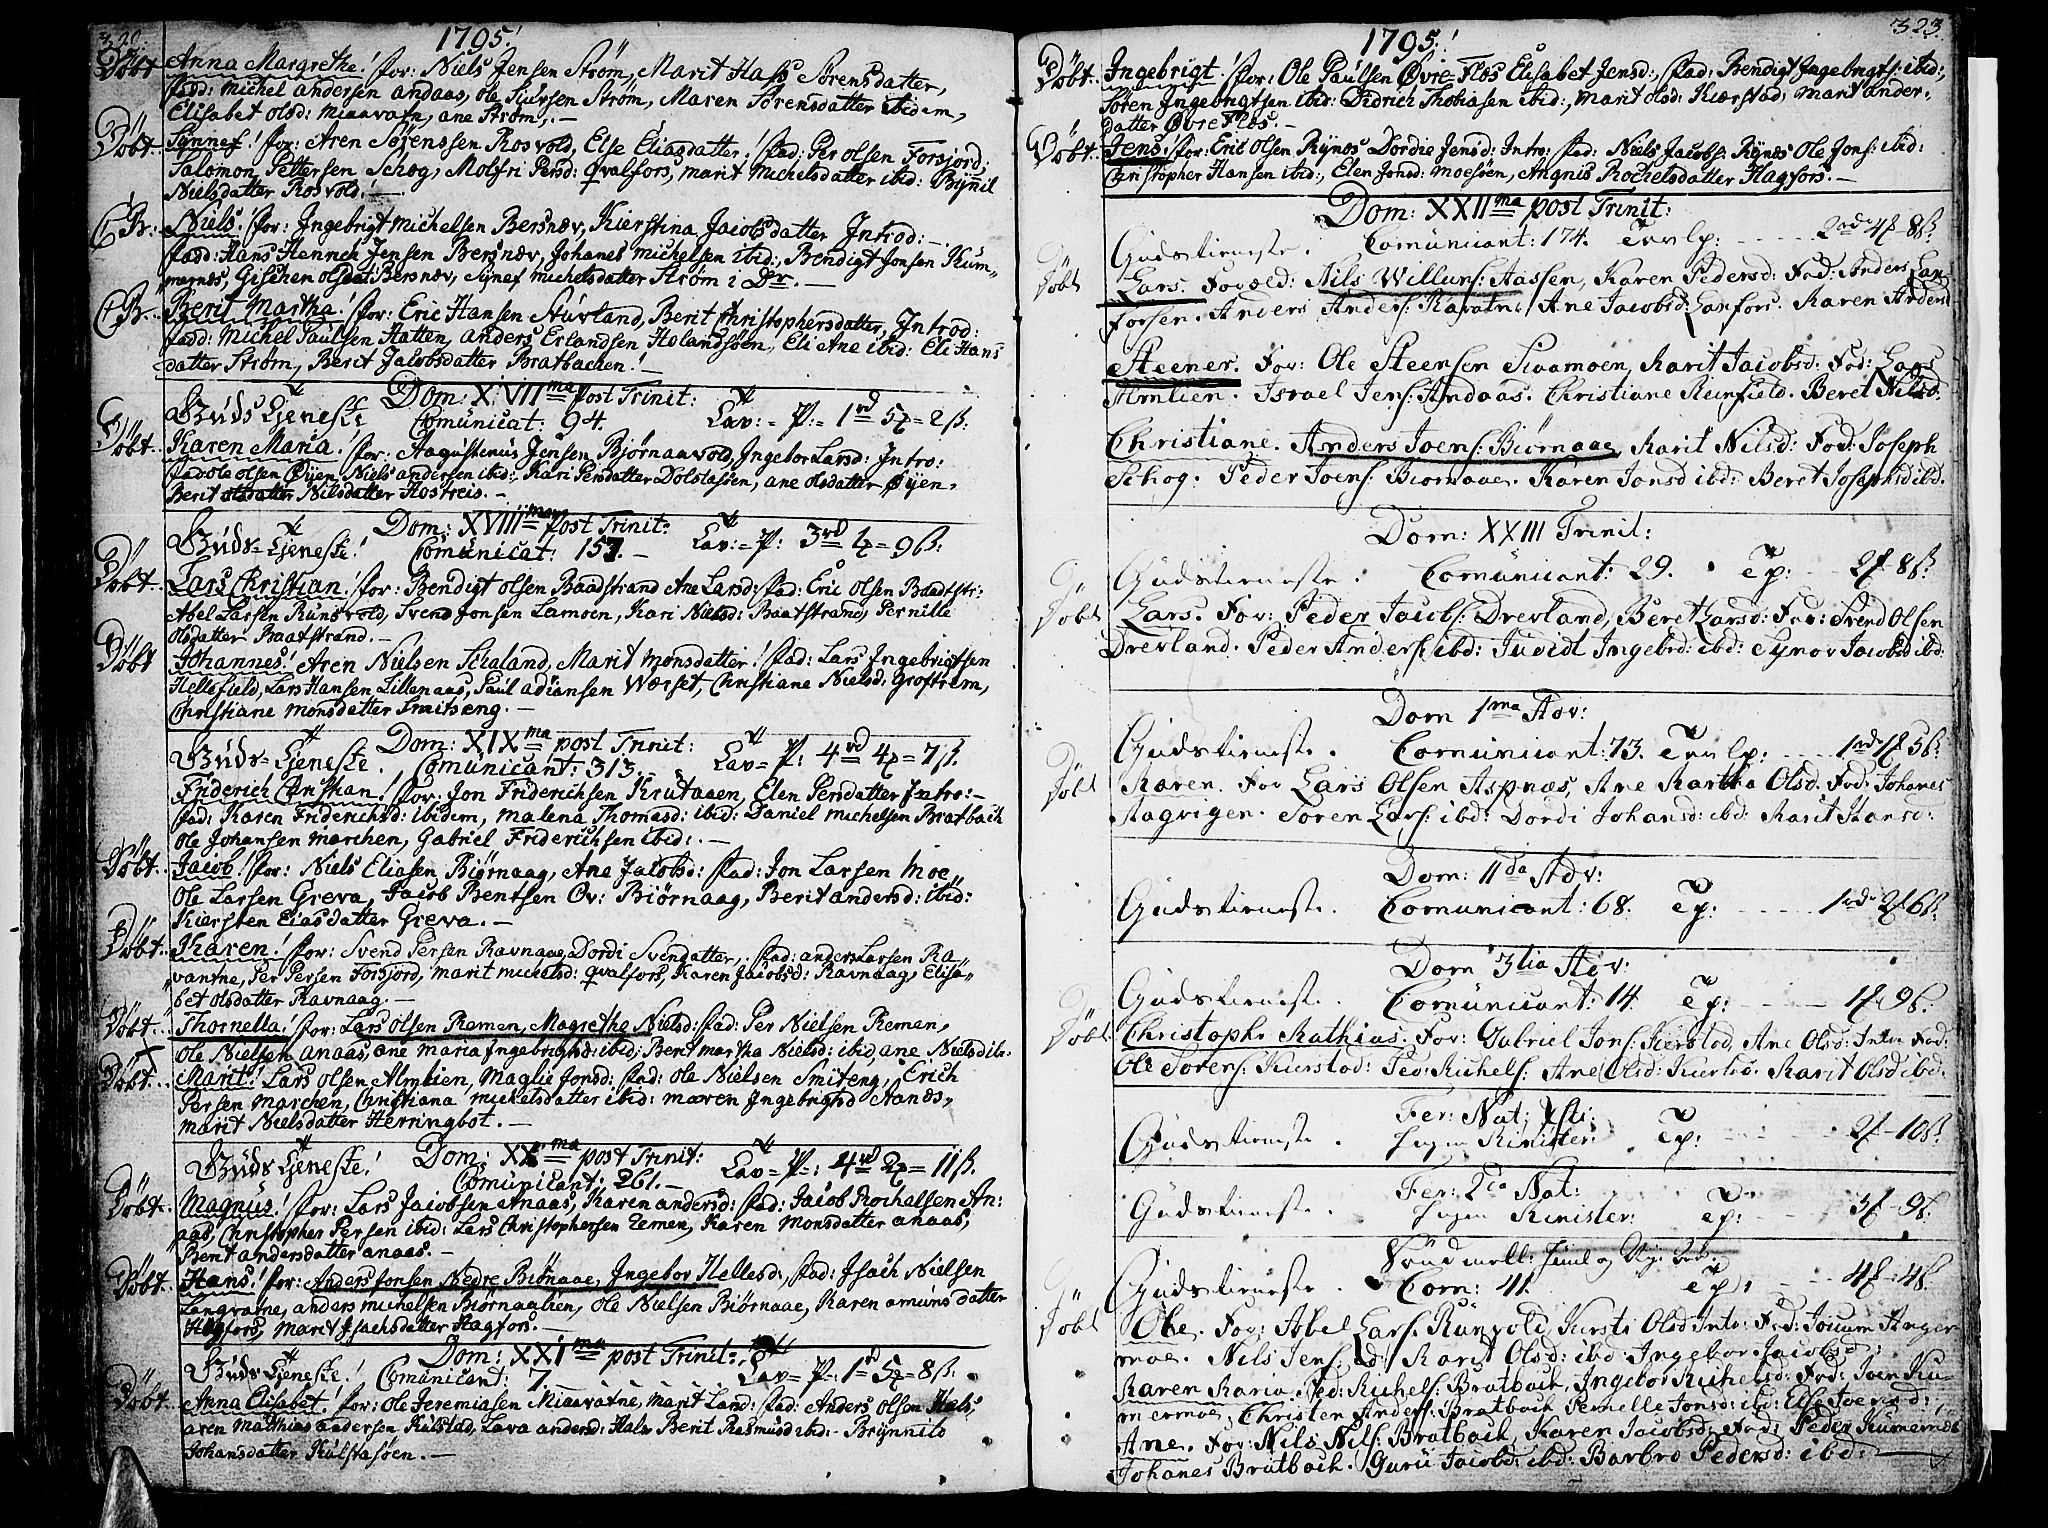 1795!
Döbt. Anna Margrethe! for: Niels Jensen Ström, Marit Hass Sörensdatter,
fadd: Michel andersen andaas, Ole Siursen Ström, Maren Sörensdatter ibidem,
Elisabet olsd: Miaavatn, ane Ström,. —
Döbt. Synnef! for: Aren Sörenssen Rosvold, Else Eliasdatter! fad: Per olsen Forsjord:
Salomon Pettersen Schog, Molfri Persd: qvalfors, marit Michelsdatter ibid: Brÿnil
Nielsdatter Rosvold! —
C B. Niels! for: Ingebrigt Michelsen Bersnæv, Kierstina Jacobsdatter Introd: —.
fadd: Hans Henrich Jensen Bersnæv, Johanes michelsen ibid:, Bendigt Jonsen Kum-
mernæs, Gischen olsdat: Bersnæv, Synef michelsdatter Ström i Dr. —
C B. Berit Martha! for: Eric Hansen Stuvland, Berit Christophersdatter, Introd:
fadd: Michel Paulsen Hatten, anders Erlandsen Holandsöen, Eli Ane ibid: Eli Hans
datter Ström, Berit Jacobsdatter Bratbachen!
Dom: XVII ma post Trinit:
Guds Tjeneste Comunicat: 94. Tav: = P: = 1 rd 5 = 2 ß:
Döbt. Karen Maria! for: Aagustinus Jensen Bjørnaavold, Ingebor Larsd: Intro:
fad ole olsen Øÿen, Niels andersen ibid:, Kari Persdatter Dolstassen, ane olsdatter Øÿen.
Berit Nilsdatter Hostreis. —
Dom: XVIII ma post Trinit:
Guds= Tjeneste! Comunicat: 157. — Tav: = P: 3 rd = 9 ß:
Döbt. Lars Christian! for: Bendigt olsen Baadstrand Ane Larsd: fad: Eric olsen Baadstr:
Abel Larsen Runsvold, Svend Jonsen Lamoen, Kari Nielsd: Baatstrand, Pernille
olsdatter Baatstrand. —
Döbt Johannes! Aren Nielsen Schaland, Marit Monsdatter! fad: Lars Ingebrigtsen
Hellefield, Lars Hansen Lillenaas, Paul adiansen Wærset, Christiane Nielsd: Groftrem,
Christiane Monsdatter Smitseng. —
Dom: XIX ma post Trinit:
Guds= Tjeneste. Comunicant: 313. Tav= P: 4 rd 4 = 7 ß.
Friderich Christian! for: Jon Friderichsen Krutaaen, Elen Persdatter Intro: —
fad: Karen Friderichsd: ibidem, malena Thomasd: ibid: Daniel michelsen Bratbach
Ole Johansen marchen, Gabriel Friderichsen ibid:. —
Döbt. Jacob! for: Niels Eliasen Biørnaag, Ane Jacobsd: fad: Jon Larsen Moe,
Ole Larsen Greva, Jacob Bentsen Øv: Biørnaag, Berit andersd: ibid:
Kiersten Eliasdatter Greva. —
Döbt. Karen! for: Svend Persen Ravnaag, Dordi Svendatter,. fad: anders Larsen Ra
vantne, Per Persen Forsjord, marit michelsd: qvalfors, Karen Jacobsd: Ravnaag, Elisa-
bet olsdatter Ravnaag. —
Döbt. Thornella! for: Lars olsen Remen, Magrethe Nielsd: fad: Per Nielsen Remen,
Ole Nielsen anaas, ane maria Ingebrigtsd: ibid: Berit martha Nielsd: ibid, ane Nielsd ib:
Döbt. Marit! Lars olsen Almlien, Maglie Jonsd: fad: ole Nielsen Smiteng, Erich
Persen marchen, Christiana michelsdatter ibid: maren Ingebrigtsd Aanes,
Marit Nielsdatter Herringbot. —
Dom: XX ma post Trinit:
Guds Tjeneste! Comunicant: 261. — Tav= P=: 4 rd 2 = 11 ß.
Döbt. Magnus! for: Lars Jacobsen Anaas, Karen andersd: fad: Jacob Rochelsen An:
aas, Christopher Persen ibid: Lars Christophersen Remen, Karen Monsdatter anaas,
Berit andersdatter anaas. —
Döbt. Hans! for: Anders Jonsen Nedre Biørnaae, Ingebor Hellesd:, fad: Isach Nielsen
Langvatne, anders michelsen Biørnaaglien, Ole Nielsen Biørnaae, Karen amunsdatter
Hagfors, Marit Isachsdatter Hagfors. —
Dom: XXI ma post Trinit:
Guds Tjeneste! Comunicant: 7 — Tav= P=: 1 rd 5 = 8 ß.
Döbt. Anna Elisabet! for: Ole Jeremiasen Miaavatne, Marit Land: fad: Anders Olsen Hals,
aren Matthias andersen Kulstad, Lava andersd: Hals, Berit Rasmusd ibid: Brÿnnild
Johansdatter Kulstasøen. —
323
1795!
Döbt. Ingebrigt! for: Ole Paulsen Øvre Flos Elisabet Jensd:, fad: Bendigt Ingebrigts: ibid:,
Sören Ingebrigtsen ibid: Didrich Thobiasen ibid:, Marit olsd: Kiærstad, Marit ander-
datter Øvre Flos. —
Döbt. Jens! for: Eric olsen Rÿnes Dordie Jensd: Intro: fad: Niels Jacobs: Rÿnes Ole Jons: ibid:
Christopher Hansen ibid:, Elen Jonsd: Moesöen, Angnis Rochelsdatter Hagfors. —
Dom: XXII ma post Trinit:
Gudstieneste. Comunicant: 174. Tavlp: - - - - 2 rd 4 8ß
Döbt Lars. Foræld: Nils Willums: Aassen, Karen Pedersd: Fad: Anders Lan
Forsen. Anders Anders: Ravatn, Ane Jacobsd: Lanfors. Karen Andersd
Steener. For: Ole Steensen Svaamoen, Marit Jacobsd: Fad: Lars
Almlien. Israel Jens: Andaas. Christiane Reinfield. Beret Nilsd.
Christiane. Anders Joens: Biørnaae, Marit Nilsd: Fad: Joseph
Schog. Peder Joens: Biørnaae. Karen Jonsd ibd: Beret Josephsd ibd.
Dom: XXIII Trinit:
Gudstieneste. Comunicant: 29. Tp: — 2 - 8ß
Döbt Lars. For: Peder Jacobs: Drevland, Beret Larsd: Fad: Svend Olsen
Drevland. Peder Anders: ibd: Judidt Ingebrd: ibd: Synov Jacobsd ibd:
Dom 1 ma Adv:
Gudstieneste. Comunicant: 73. Tavlp: - - - 1 rd 1 5ß
Döbt Maren. For Lars Olsen Aspnæs, Ane Martha Olsd. Fad: Johanes
Hagvigen. Sören Lars: ibd: Dordi Johansd: ibd: Marit Hansd:
Dom: II da Adv:
Gudstieneste. Comunicant: 68. Tp: - - - - 1 rd 2 6ß
Dom 3 tia Adv:
Gudstieneste. Comunicant: 14. Tp: - - - 1 9ß.
Döbt Christophr Mathias. For: Gabriel Jons: Kierstad, Ane Olsd: Intr Fad:
Ole Sörens: Kierstad: Ped: Michels: Ane Olsd: Marit Olsd ibd.
Fer: Nat; Xsti:
Gudstieneste. Ingen Minister: Tp: - - - 2 - 10ß.
Fer: 2 da Nat:
Gudstieneste. Ingen Minister: Tp: 3 9ß.
Sönd mell: Juul og Nÿe
Gudstieneste. Com: 41. Tp: - - - 4 - 4ß.
Döbt Ole. For: Abel Lars: Runvold, Kirsti Olsd Into: Fad: Anger
moe. Nils Jens: Marit Olsd: ibd: Ingebor Jacobsd:
Karen Maria. Ped: Michels: Bratbach, Ingebor Michelsd: Fad: Joen Ku
mermoe, Christen Anders: Bratbach Pernelle Jonsd: ibd: Else
Ane. For: Nils Nils: Bratbach, Karen Jacobsd: Fad: Peder Kumernes
Johanes Bratbach. Guru Jacobd: ibd: Barbro Pedersd: ibd: —